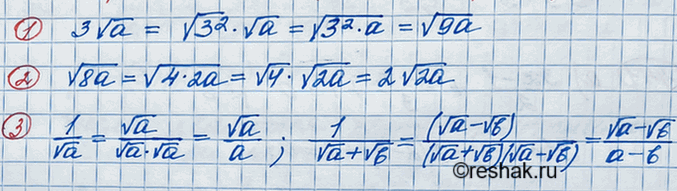 ① 3√a = √3² · √a = √3²·a = √9a
② √8a = √4·2a = √4 · √2a = 2√2a
③ 1/√a = √a/√a·√a = √a/a ; 1/√a+√b = (√a-√b)/(√a+√b)(√a-√b) = √a-√b/a-b
©reshak.ru